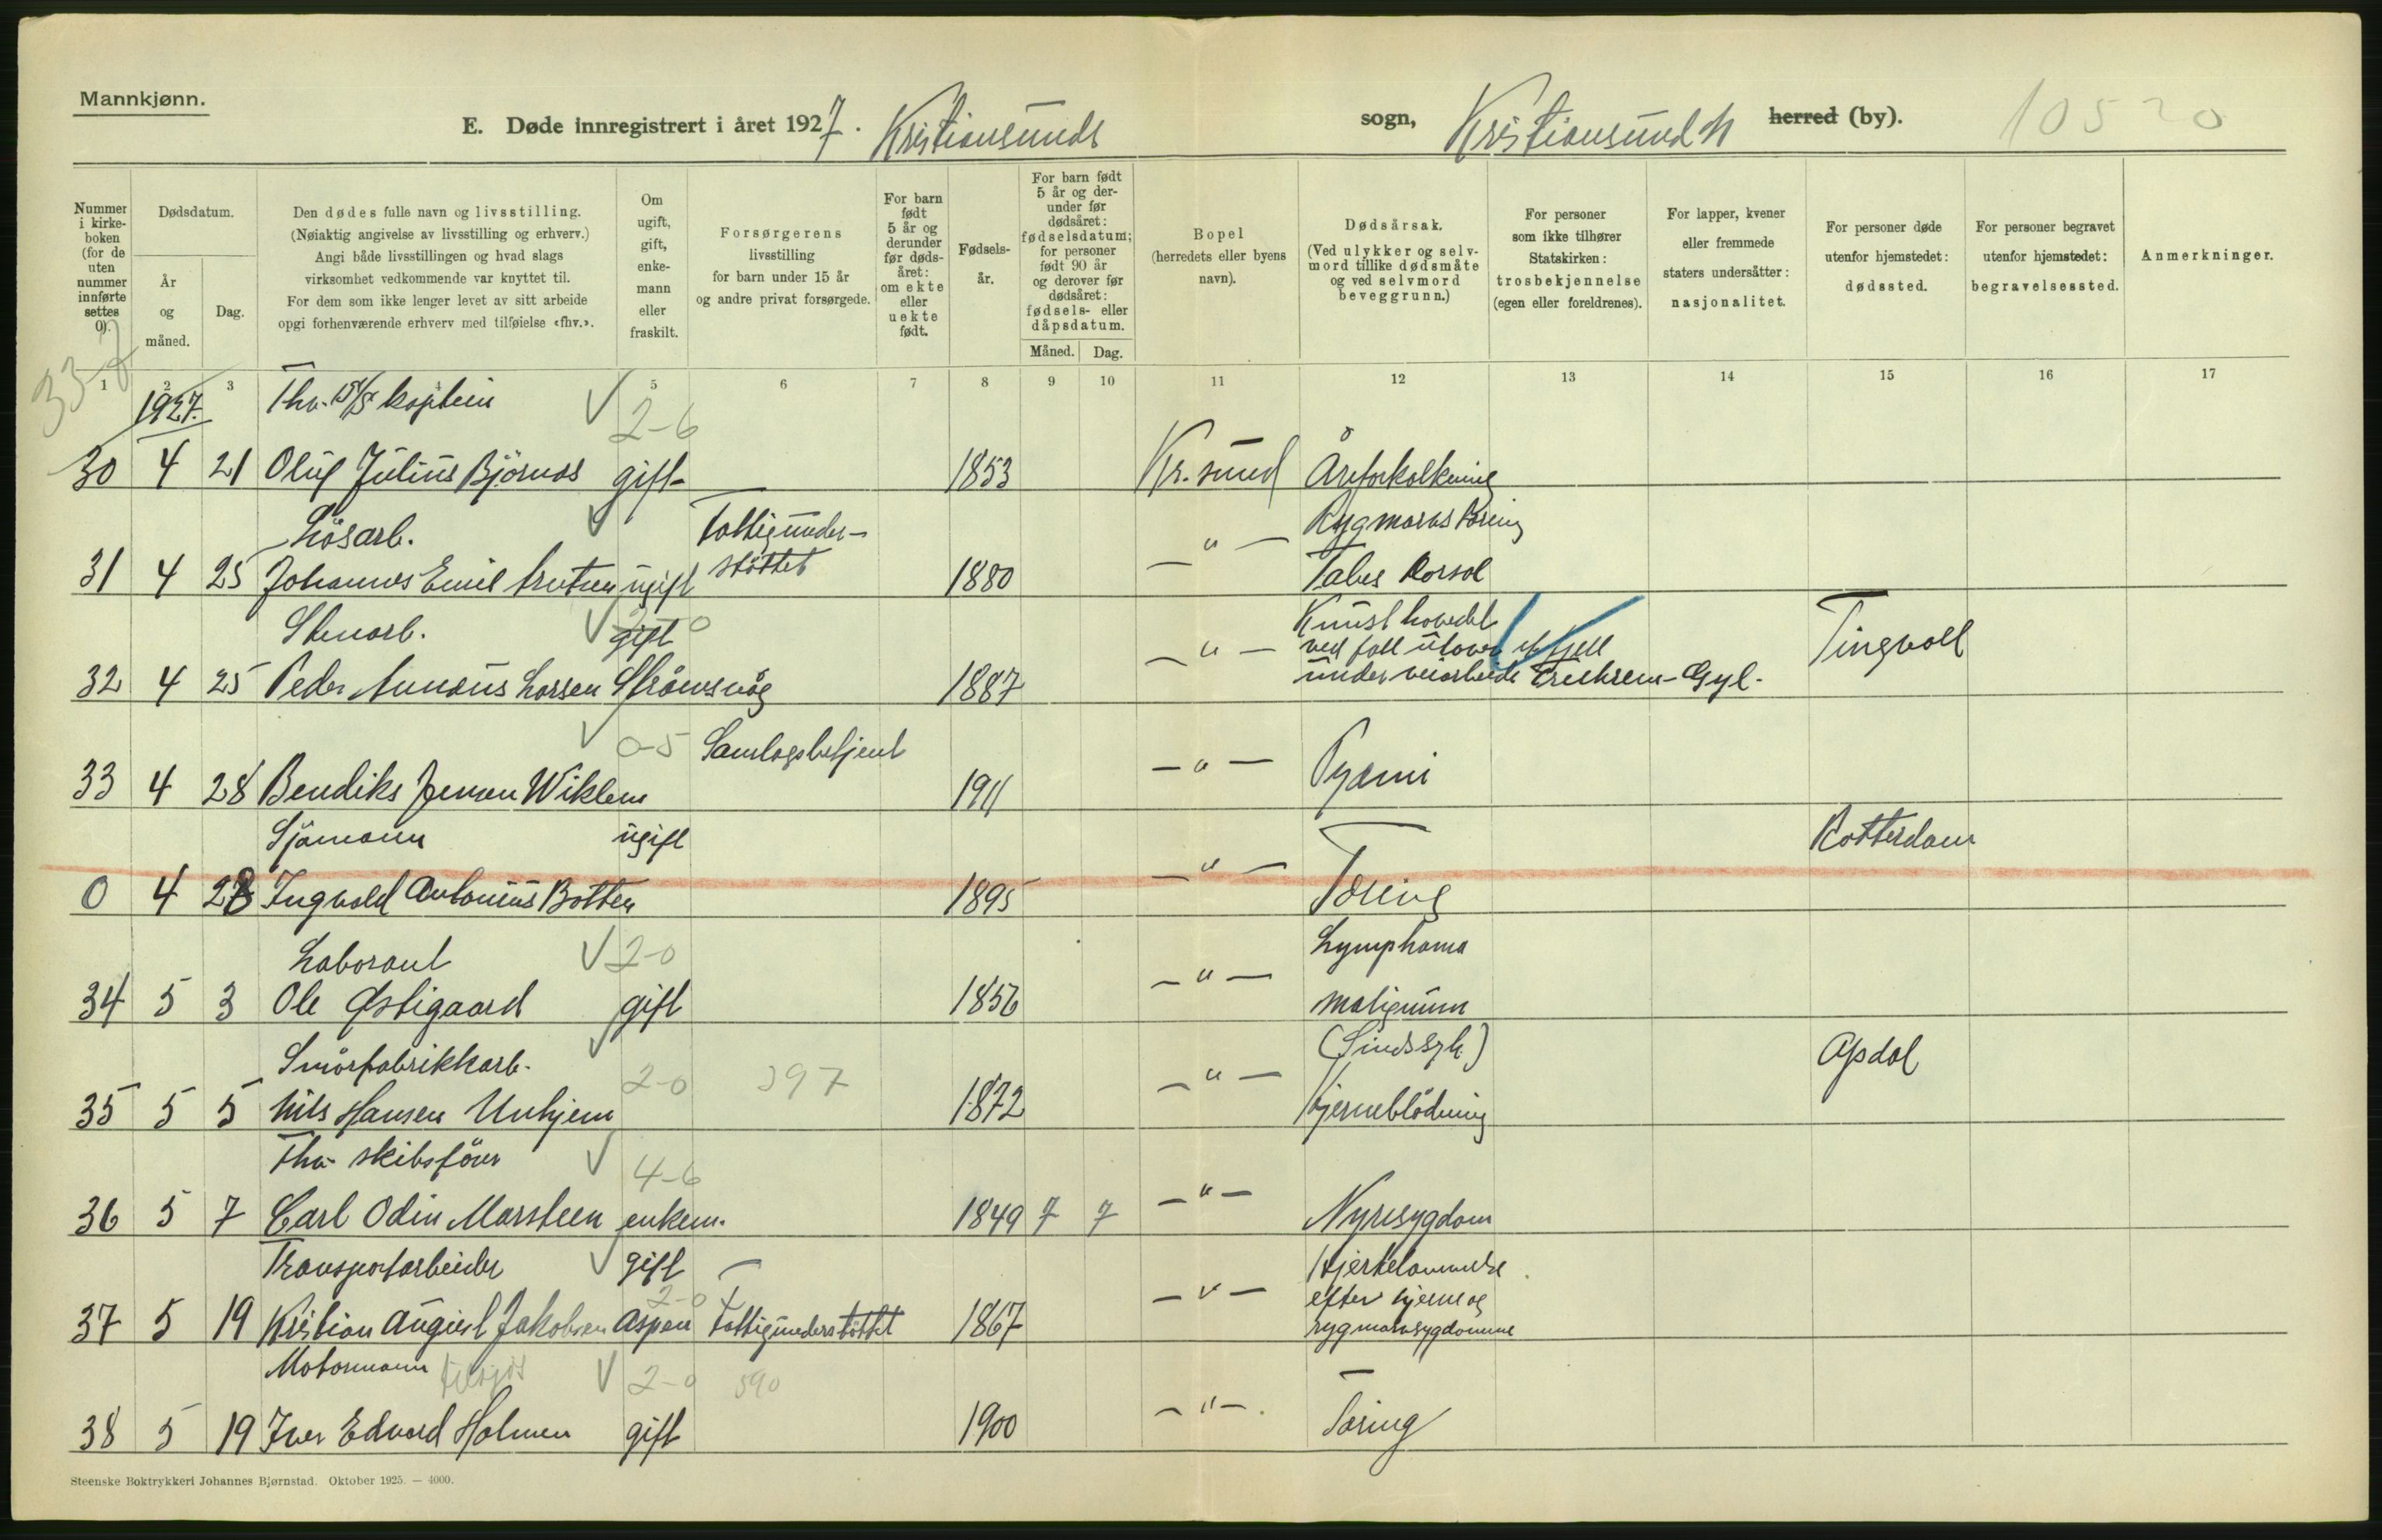 Mannkjønn.
E. Døde innregistrert i året 1927. Kristiansunds sogn, Kristiansund N herred (by). 10520
Nummer i kirkeboken (for de uten nummer innførte settes 0).
Dødsdatum.
År og måned.
Dag.
Den dødes fulle navn og livsstilling.
(Nøiaktig angivelse av livsstilling og erhverv.)
Angi både livsstillingen og hvad slags
virksomhet vedkommende var knyttet til.
For dem som ikke lenger levet av sitt arbeide
opgi forhenværende erhverv med tilføielse «fhv.».
Om ugift, gift, enkemann eller fraskilt.
Forsørgerens
livsstilling
for barn under 15 år
og andre privat forsørgede.
For barn født 5 år og derunder før dødsåret: om ekte eller uekte født.
Fødselsår.
For barn født 5 år og derunder før dødsåret: fødselsdatum; for personer født 90 år og derover før dødsåret: fødsels- eller dåpsdatum.
Måned. Dag.
Bopel
(herredets eller byens
navn).
Dødsårsak.
(Ved ulykker og selvmord tillike dødsmåte og ved selvmord beveggrunn.)
For personer
som ikke tilhører
Statskirken:
trosbekjennelse
(egen eller foreldrenes).
For lapper, kvener
eller fremmede
staters undersåtter:
nasjonalitet.
For personer døde
utenfor hjemstedet:
dødssted.
For personer begravet
utenfor hjemstedet:
begravelsessted.
Anmerkninger.
1 2 3 4 5 6 7 8 9 10 11 12 13 14 15 16 17
1927. Fhv. kaptein 2-6
30 4 21 Oluf Julius Bjørnås gift 1853 Kr.sund Åreforkalkning
Løsarb. Fattigunder- Rygmarvstæring
31 4 25 Johannes Emil ugift støttet 1880 —"— Tabes dorsal
Stenarb. gift 0 Knust hovedet
ved fall utover et fjell Tingvoll
32 4 25 Peder Larsen Strømsvåg 1887 —"— under veiarbeide - Gyl.
0-5 Samlagsbetjent
33 4 28 Bendiks Jensen Wiklem 1911 —"— Pyæmi
Sjømann ugift Rotterdam
0 4 28 Ingvald Antonius Botten 1895 —"— Tæring
Laborant 2-0 Lymphoma
34 5 3 Ole Østigaard gift 1856 —"— malignum
Smørfabrikkarb. 2-0 397 (Sindssyk) Opdal
35 5 5 Nils Hansen Unhjem 1872 —"— Hjerneblødning
Fhv. skibsfører 4-6
36 5 7 Carl Odin Marsteen enkem. 1849 7 7 —"— Nyresygdom
Transportarbeider gift Hjertelammelse
2-0 efter hjerne og
37 5 19 Kristian August Jakobsen Aspen Fattigunderstøttet 1867 —"— rygmarvsygdomme
Motormann 2-0 590
38 5 19 Iver Edvard Holmen gift 1900 —"— Tæring
Steenske Boktrykkeri Johannes Bjørnstad. Oktober 1925. — 4000.